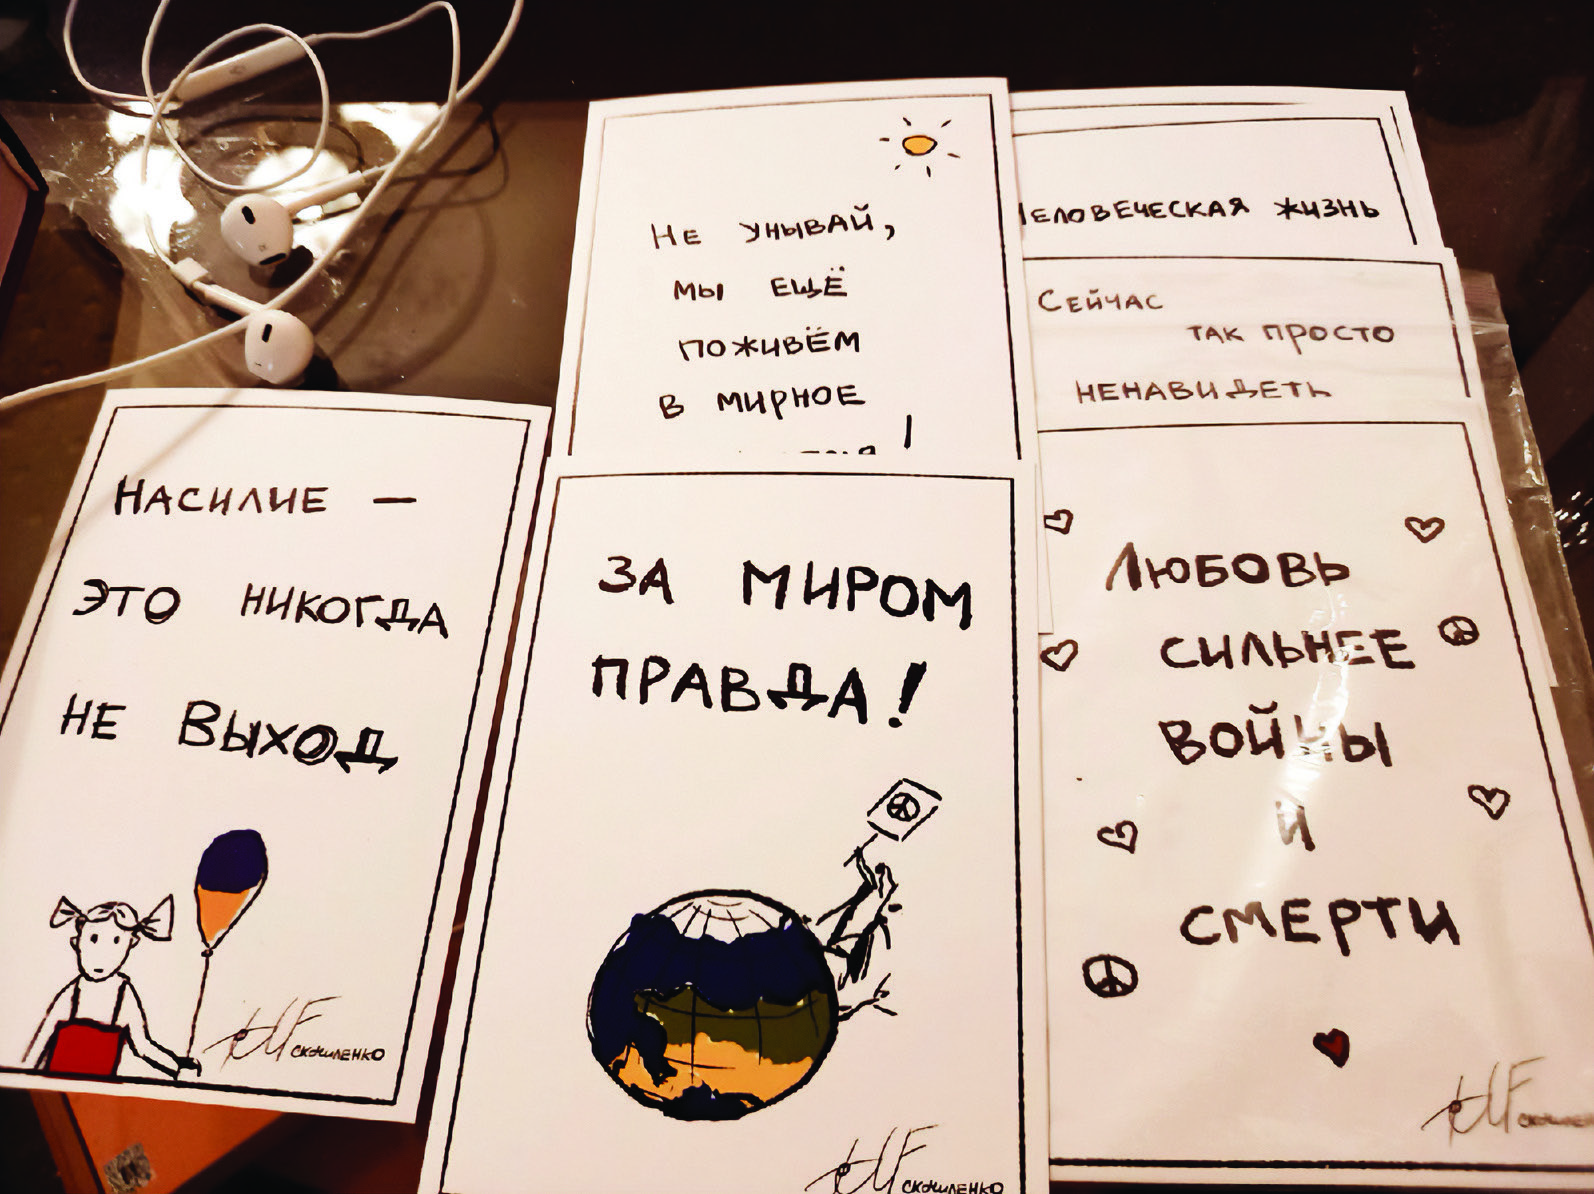 НЕ УНЫВАЙ,
МЫ ЕЩЁ
ПОЖИВЁМ
В МИРНОЕ
!
ЕЛОВЕЧЕСКАЯ ЖИЗНЬ
СЕЙЧАС
ТАК ПРОСТО
НЕНАВИДЕТЬ
НАСИЛИЕ —
ЭТО НИКОГДА
НЕ ВЫХОД
СКОЧИЛЕНКО
ЗА МИРОМ
ПРАВДА!
СКОЧИЛЕНКО
ЛЮБОВЬ
СИЛЬНЕЕ
ВОЙНЫ
И
СМЕРТИ